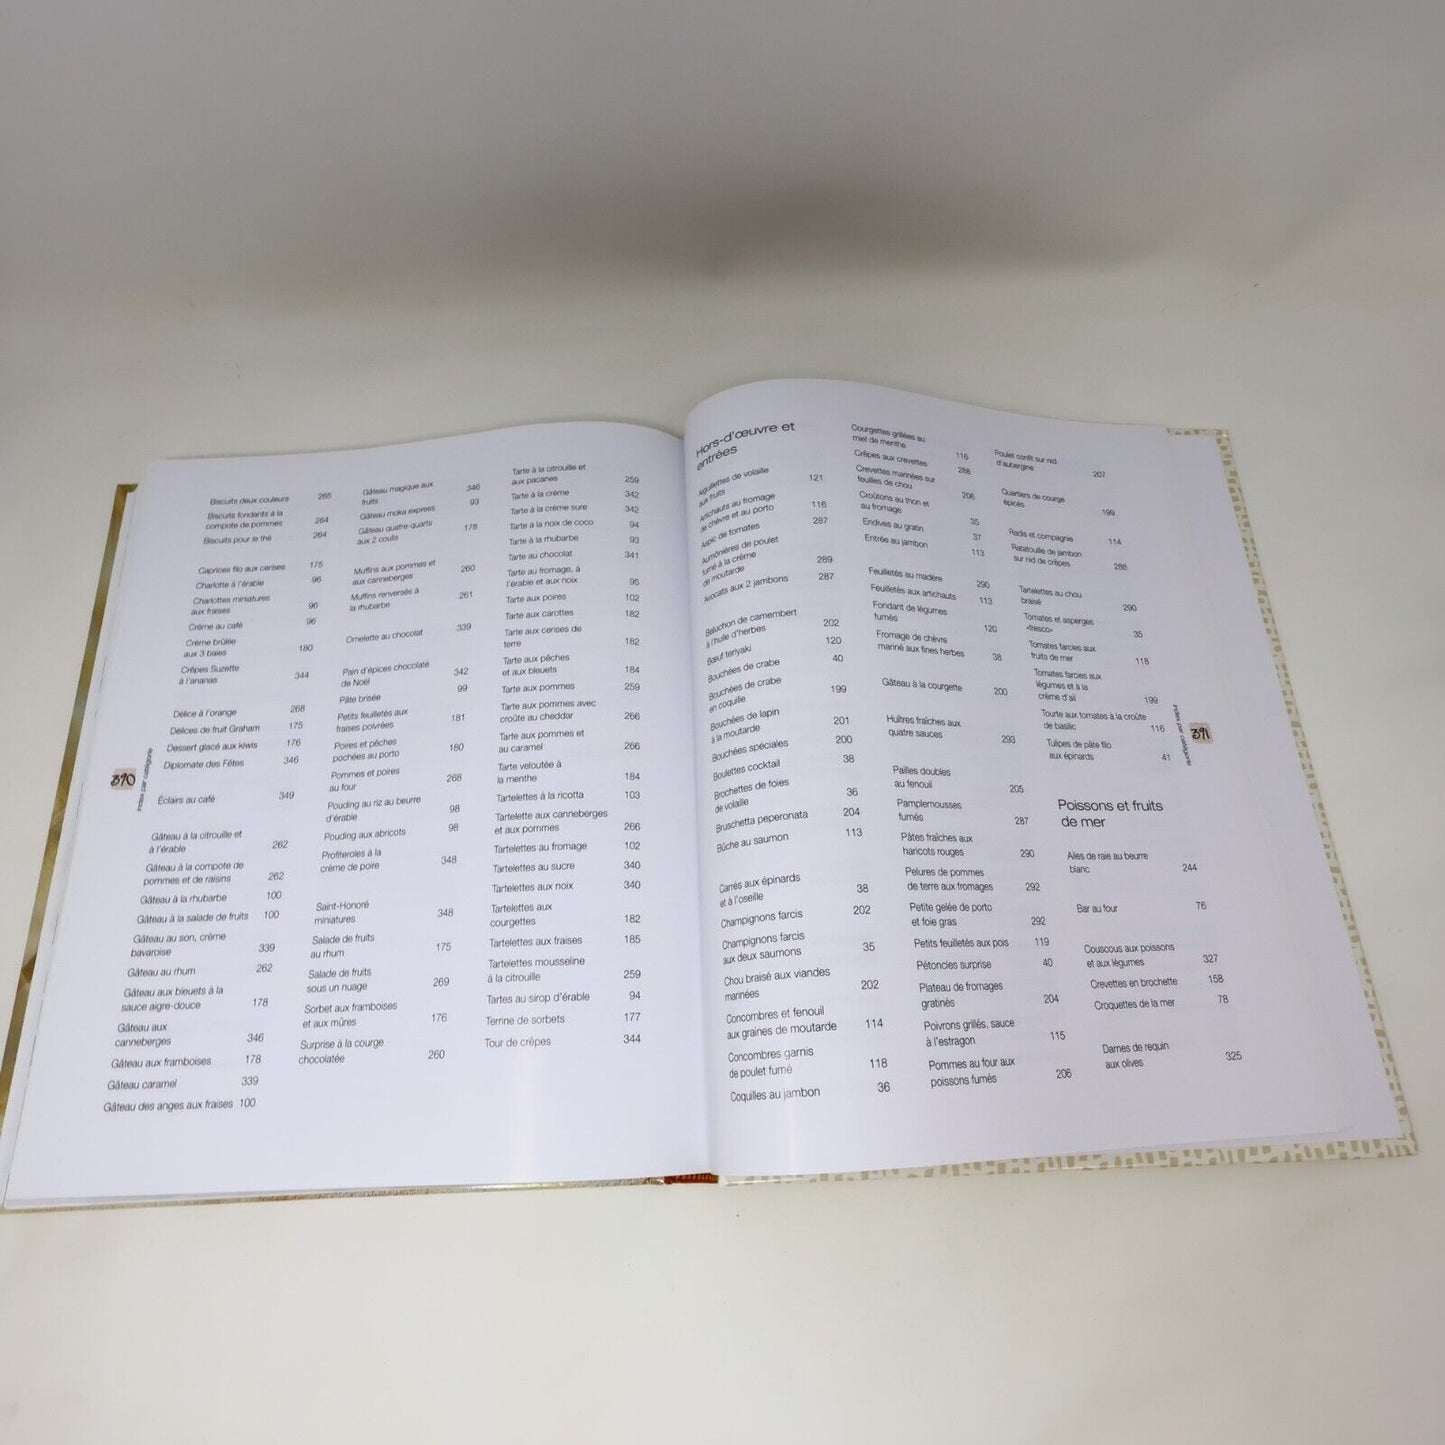 Biscuits deux couleurs 265
Biscuits fondants à la
compote de pommes 264
Biscuits pour le thé 264
Caprices filo aux cerises 175
Charlotte à l'érable 96
Charlottes miniatures
aux fraises 96
Crème au café 96
Crème brûlée
aux 3 baies 180
Crêpes Suzette
à l'ananas 344
Délice à l'orange 268
Délices de fruit Graham 175
Dessert glacé aux kiwis 176
Diplomate des Fêtes 346
Éclairs au café 349
Gâteau à la citrouille et
à l'érable 262
Gâteau à la compote de
pommes et de raisins 262
Gâteau à la rhubarbe 100
Gâteau à la salade de fruits 100
Gâteau au son, crème
bavaroise 339
Gâteau au rhum 262
Gâteau aux bleuets à la
sauce aigre-douce 178
Gâteau aux
canneberges 346
Gâteau aux framboises 178
Gâteau caramel 339
Gâteau des anges aux fraises 100
Gâteau magique aux
fruits 346
Gâteau moka express 93
Gâteau quatre-quarts
aux 2 coulis 178
Muffins aux pommes et
aux canneberges 260
Muffins renversés à
la rhubarbe 261
Omelette au chocolat 339
Pain d'épices chocolaté
de Noël 342
Pâte brisée 99
Petits feuilletés aux
fraises poivrées 181
Poires et pêches
pochées au porto 180
Pommes et poires
au four 268
Pouding au riz au beurre
d'érable 98
Pouding aux abricots 98
Profiteroles à la
crème de poire 348
Saint-Honoré
miniatures 348
Salade de fruits
au rhum 175
Salade de fruits
sous un nuage 269
Sorbet aux framboises
et aux mûres 176
Surprise à la courge
chocolatée 260
Tarte à la citrouille et
aux pacanes 259
Tarte à la crème 342
Tarte à la crème sure 342
Tarte à la noix de coco 94
Tarte à la rhubarbe 93
Tarte au chocolat 341
Tarte au fromage, à
l'érable et aux noix 95
Tarte aux poires 102
Tarte aux carottes 182
Tarte aux cerises de
terre 182
Tarte aux pêches
et aux bleuets 184
Tarte aux pommes 259
Tarte aux pommes avec
croûte au cheddar 266
Tarte aux pommes et
au caramel 266
Tarte veloutée à
la menthe 184
Tartelettes à la ricotta 103
Tartelette aux canneberges
et aux pommes 266
Tartelettes au fromage 102
Tartelettes au sucre 340
Tartelettes aux noix 340
Tartelettes aux
courgettes 182
Tartelettes aux fraises 185
Tartelettes mousseline
à la citrouille 259
Tartes au sirop d'érable 94
Terrine de sorbets 177
Tour de crêpes 344
390
Index par catégorie
Hors-d'œuvre et
entrées
Aiguillettes de volaille
aux fruits 121
Artichauts au fromage
de chèvre et au porto 116
Aspic de tomates 287
Aumônières de poulet
fumé à la crème
de moutarde 289
Avocats aux 2 jambons 287
Baluchon de camembert
à l'huile d'herbes 202
Bœuf teriyaki 120
Bouchées de crabe 40
Bouchées de crabe
en coquille 199
Bouchées de lapin
à la moutarde 201
Bouchées spéciales 200
Boulettes cocktail 38
Brochettes de foies
de volaille 36
Bruschetta peperonata 204
Bûche au saumon 113
Carrés aux épinards
et à l'oseille 38
Champignons farcis 202
Champignons farcis
aux deux saumons 35
Chou braisé aux viandes
marinées 202
Concombres et fenouil
aux graines de moutarde 114
Concombres garnis
de poulet fumé 118
Coquilles au jambon 36
Courgettes grillées au
miel de menthe 116
Crêpes aux crevettes 288
Crevettes marinées sur
feuilles de chou 206
Croûtons au thon et
au fromage 35
Endives au gratin 37
Entrée au jambon 113
Feuilletés au madère 290
Feuilletés aux artichauts 113
Fondant de légumes
fumés 120
Fromage de chèvre
mariné aux fines herbes 38
Gâteau à la courgette 200
Huîtres fraîches aux
quatre sauces 293
Pailles doubles
au fenouil 205
Pamplemousses
fumés 287
Pâtes fraîches aux
haricots rouges 290
Pelures de pommes
de terre aux fromages 292
Petite gelée de porto
et foie gras 292
Petits feuilletés aux pois 119
Pétoncles surprise 40
Plateau de fromages
gratinés 204
Poivrons grillés, sauce
à l'estragon 115
Pommes au four aux
poissons fumés 206
Poulet confit sur nid
d'aubergine 207
Quartiers de courge
épicés 199
Radis et compagnie 114
Ratatouille de jambon
sur nid de crêpes 288
Tartelettes au chou
braisé 290
Tomates et asperges
«fresco» 35
Tomates farcies aux
fruits de mer 118
Tomates farcies aux
légumes et à la
crème d'ail 199
Tourte aux tomates à la croûte
de basilic 116
Tulipes de pâte filo
aux épinards 41
Poissons et fruits
de mer
Ailes de raie au beurre
blanc 244
Bar au four 76
Couscous aux poissons
et aux légumes 327
Crevettes en brochette 158
Croquettes de la mer 78
Darnes de requin
aux olives 325
391
Index par catégorie